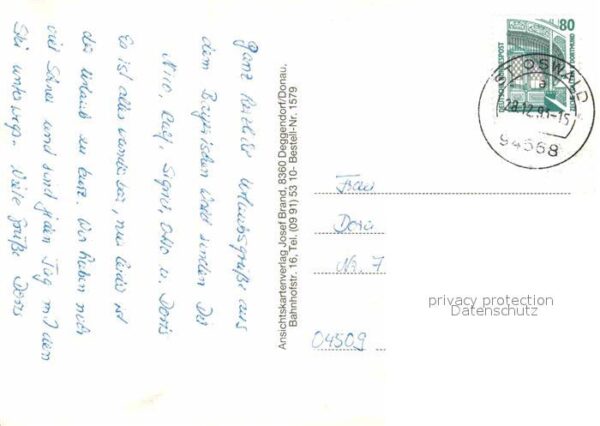 Ganz herzliche Urlaubsgrüße aus
dem Bayrischen Wald senden Dir
Nico, Ralf, Sigrid, Otto u. Doris
Es ist alles wunderbar, nur leider ist
der Urlaub zu kurz. Wir haben noch
viel Schnee und sind jeden Tag mit den
Ski unterwegs. Viele Grüße Doris
Ansichtskartenverlag Josef Brand, 8360 Deggendorf/Donau,
Bahnhofstr. 16, Tel. (09 91) 53 10- Bestell-Nr. 1579
80
DEUTSCHE BUNDESPOST
DORTMUND
ST OSWALD
a
28.12.93-15
94568
Frau
Doris
Nr. 7
04509
privacy protection
Datenschutz